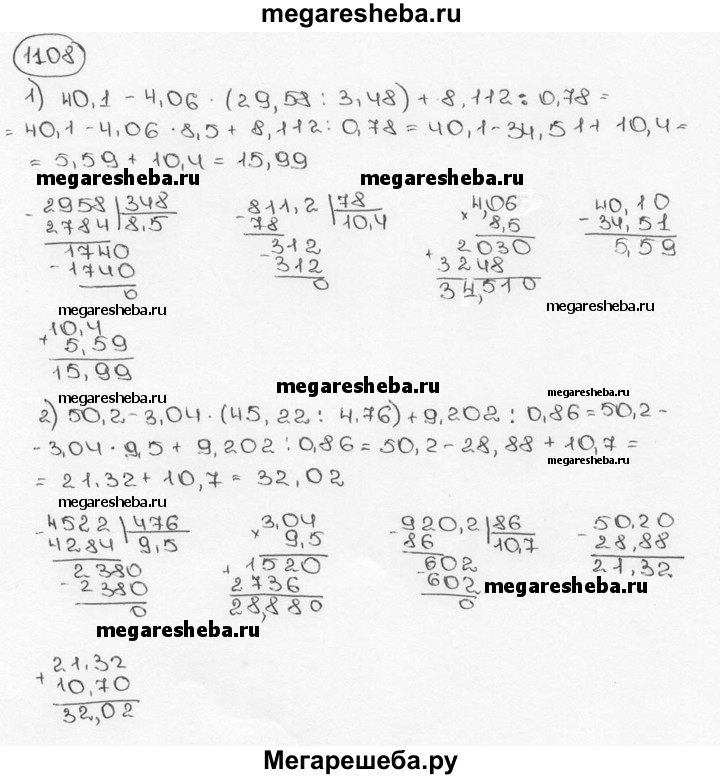 megaresheba.ru
1108
1) 40,1 - 4,06 · (29,58 : 3,48) + 8,112 : 0,78 =
= 40,1 - 4,06 · 8,5 + 8,112 : 0,78 = 40,1 - 34,51 + 10,4 =
= 5,59 + 10,4 = 15,99
megaresheba.ru megaresheba.ru
- 2958 | 348
2784 | 8,5
1740
- 1740
0
- 811,2 | 78
78 | 10,4
312
- 312
0
4,06
× 8,5
2030
+ 3248
34,510
40,10
- 34,51
5,59
megaresheba.ru megaresheba.ru megaresheba.ru
10,4
+ 5,59
15,99
megaresheba.ru
2) 50,2 - 3,04 · (45,22 : 4,76) + 9,202 : 0,86 = 50,2 -
- 3,04 · 9,5 + 9,202 : 0,86 = 50,2 - 28,88 + 10,7 =
= 21,32 + 10,7 = 32,02
megaresheba.ru
megaresheba.ru
megaresheba.ru
- 4522 | 476
4284 | 9,5
2380
- 2380
0
3,04
× 9,5
+ 1520
2736
28,880
- 920,2 | 86
86 | 10,7
602
- 602
0
50,20
- 28,88
21,32
megaresheba.ru
megaresheba.ru
megaresheba.ru
21,32
+ 10,70
32,02
Мегарешеба.ру